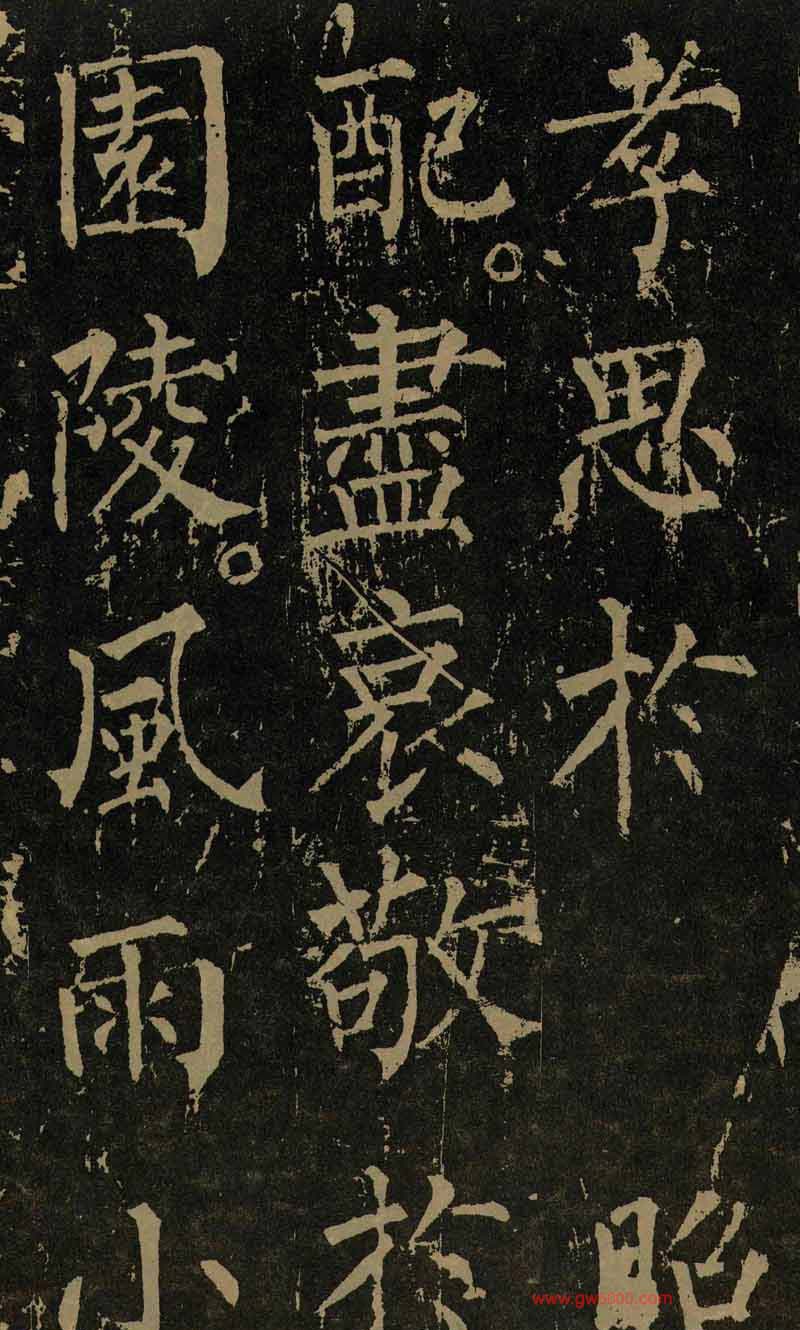 孝思於 昭
配。盡哀敬於
園陵。風雨小
www.gw5000.com